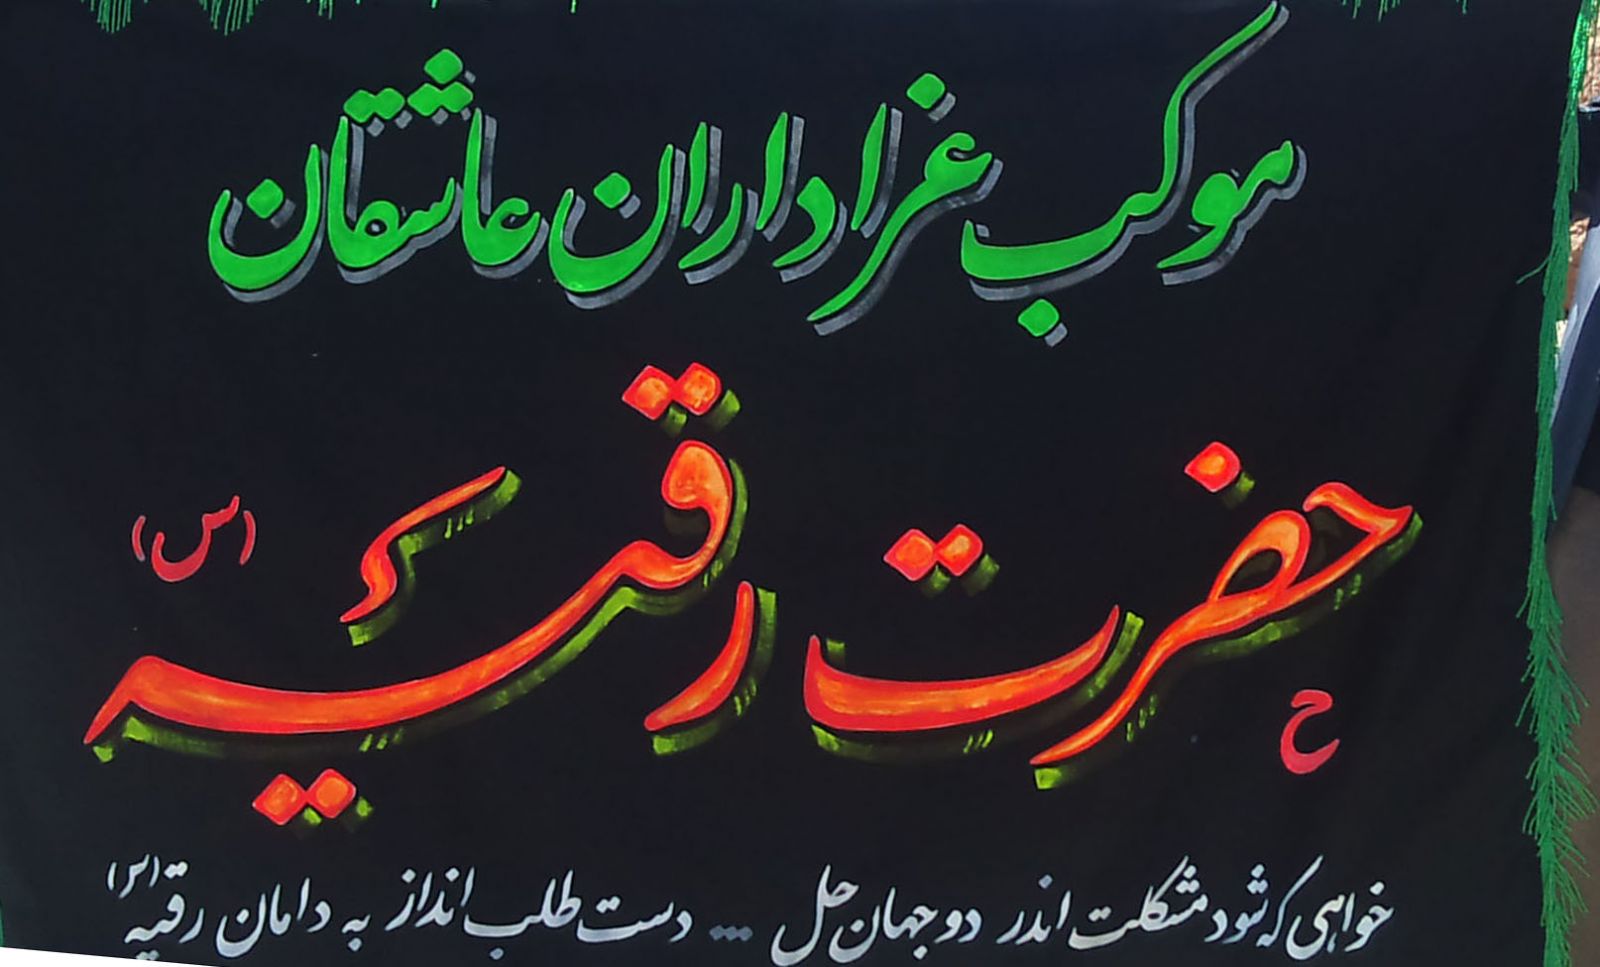 موکب عزاداران عاشقان
حضرت رقیه (س)
خواهی که شود مشکلت اندر دو جهان حل ... دست طلب انداز به دامان رقیه (س)